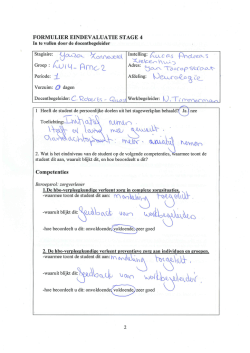 FORMULIER EINDEVALUATIE STAGE 4
In te vullen door de docentbegeleider
Stagiaire: Instelling: Lucas Andreas
Ziekenhuis
Groep: Adres: Jan Tooropstraat
Periode: 1 Afdeling: Neurologie
Verzuim: 0 dagen
Docentbegeleider: C. Roberts Werkbegeleider: N. Timmerman
1. Heeft de student de persoonlijke doelen uit het stagewerkplan behaald? Ja / nee
Toelichting: Initiatief nemen.
Hoeft er lang mee gewerkt.
aandachtspunt meer initiatief nemen
2. Wat is het eindniveau van de student op de volgende competenties, waarmee toont de
student dit aan, waaruit blijkt dit, en hoe beoordeelt u dit?
Competenties
Beroepsrol: zorgverlener
1.De hbo-verpleegkundige verleent zorg in complexe zorgsituaties.
-waarmee toont de student dit aan: mondeling toegelicht
-waaruit blijkt dit: feedback van werkbegeleider
-hoe beoordeelt u dit: onvoldoende, voldoende, zeer goed
2. De hbo-verpleegkundige verleent preventieve zorg aan individuen en groepen.
-waarmee toont de student dit aan: mondeling toegelicht.
-waaruit blijkt dit: feedback van werkbegeleider.
-hoe beoordeelt u dit: onvoldoende, voldoende, zeer goed
2